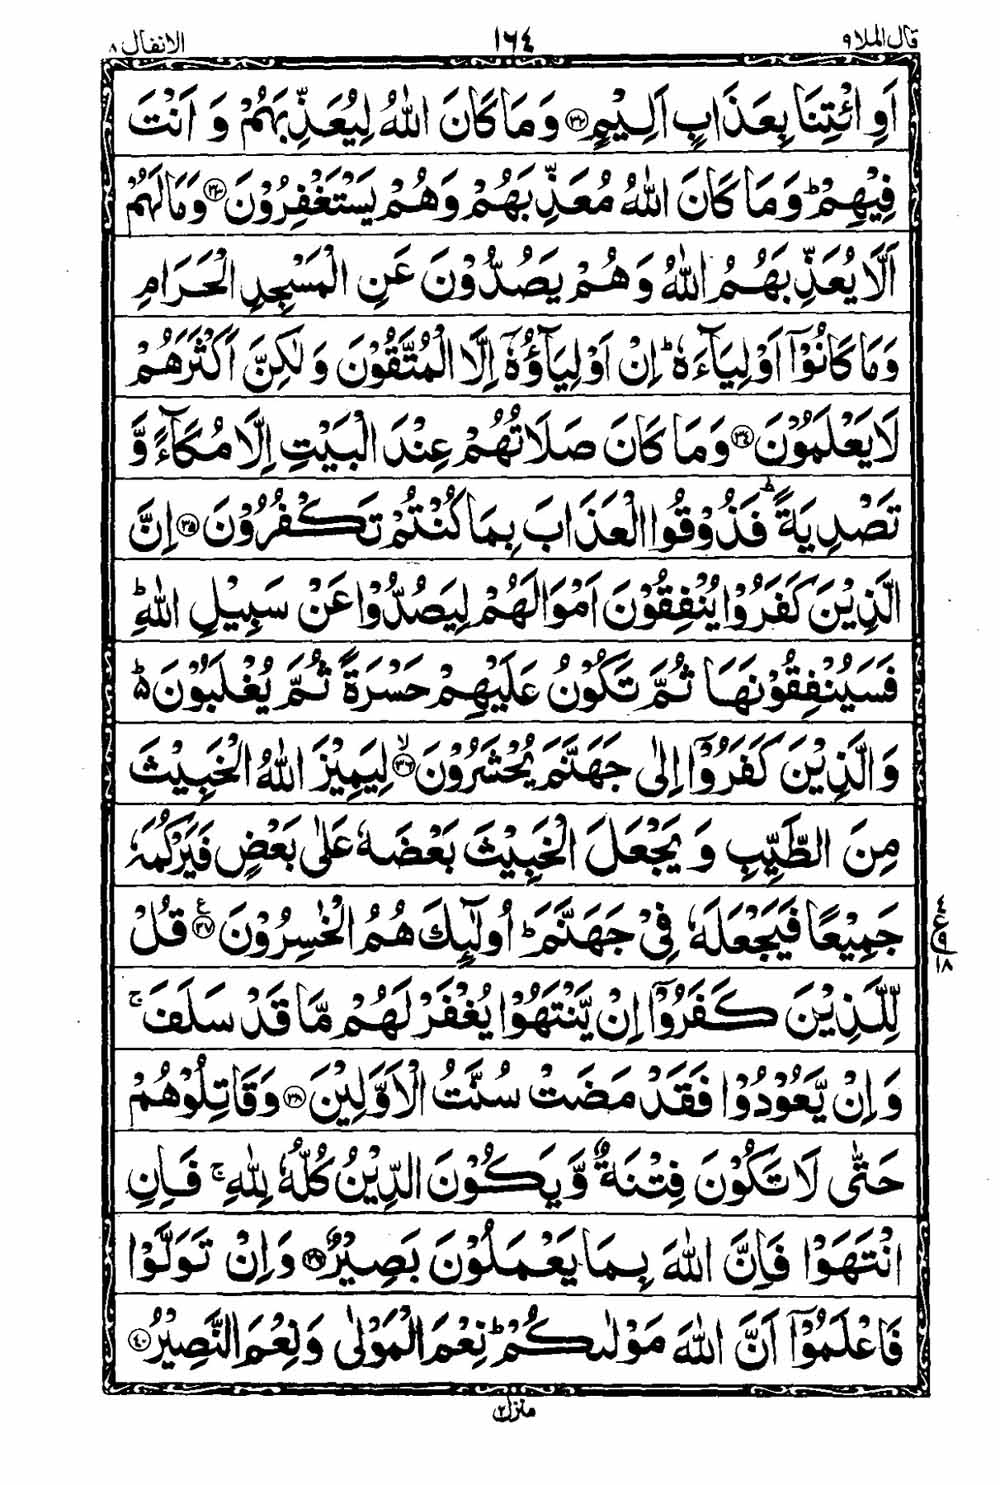 قال الملا ٩ ١٦٤ الانفال ٨
اَوِ ائْتِنَا بِعَذَابٍ اَلِيْمٍ ﴿٣٢﴾ وَمَا كَانَ اللّٰهُ لِيُعَذِّبَهُمْ وَ اَنْتَ
فِيْهِمْ ؕ وَمَا كَانَ اللّٰهُ مُعَذِّبَهُمْ وَهُمْ يَسْتَغْفِرُوْنَ ﴿٣٣﴾ وَمَا لَهُمْ
اَلَّا يُعَذِّبَهُمُ اللّٰهُ وَهُمْ يَصُدُّوْنَ عَنِ الْمَسْجِدِ الْحَرَامِ
وَمَا كَانُوْۤا اَوْلِيَآءَهٗ ؕ اِنْ اَوْلِيَآؤُهٗۤ اِلَّا الْمُتَّقُوْنَ وَلٰكِنَّ اَكْثَرَهُمْ
لَا يَعْلَمُوْنَ ﴿٣٤﴾ وَمَا كَانَ صَلَاتُهُمْ عِنْدَ الْبَيْتِ اِلَّا مُكَآءً وَّ
تَصْدِيَةً ؕ فَذُوْقُوا الْعَذَابَ بِمَا كُنْتُمْ تَكْفُرُوْنَ ﴿٣٥﴾ اِنَّ
الَّذِيْنَ كَفَرُوْا يُنْفِقُوْنَ اَمْوَالَهُمْ لِيَصُدُّوْا عَنْ سَبِيْلِ اللّٰهِ ؕ
فَسَيُنْفِقُوْنَهَا ثُمَّ تَكُوْنُ عَلَيْهِمْ حَسْرَةً ثُمَّ يُغْلَبُوْنَ ۬ؕ
وَالَّذِيْنَ كَفَرُوْۤا اِلٰى جَهَنَّمَ يُحْشَرُوْنَ ﴿٣٦﴾ۙ لِيَمِيْزَ اللّٰهُ الْخَبِيْثَ
مِنَ الطَّيِّبِ وَيَجْعَلَ الْخَبِيْثَ بَعْضَهٗ عَلٰى بَعْضٍ فَيَرْكُمَهٗ
جَمِيْعًا فَيَجْعَلَهٗ فِيْ جَهَنَّمَ ؕ اُولٰٓئِكَ هُمُ الْخٰسِرُوْنَ ﴿٣٧﴾ع قُلْ
٤ ع ٩ ١٨
لِّلَّذِيْنَ كَفَرُوْۤا اِنْ يَّنْتَهُوْا يُغْفَرْ لَهُمْ مَّا قَدْ سَلَفَ ۚ
وَاِنْ يَّعُوْدُوْا فَقَدْ مَضَتْ سُنَّتُ الْاَوَّلِيْنَ ﴿٣٨﴾ وَقَاتِلُوْهُمْ
حَتّٰى لَا تَكُوْنَ فِتْنَةٌ وَّيَكُوْنَ الدِّيْنُ كُلُّهٗ لِلّٰهِ ۚ فَاِنِ
انْتَهَوْا فَاِنَّ اللّٰهَ بِمَا يَعْمَلُوْنَ بَصِيْرٌ ﴿٣٩﴾ وَاِنْ تَوَلَّوْا
فَاعْلَمُوْۤا اَنَّ اللّٰهَ مَوْلٰىكُمْ ؕ نِعْمَ الْمَوْلٰى وَنِعْمَ النَّصِيْرُ ﴿٤٠﴾
منزل ٢